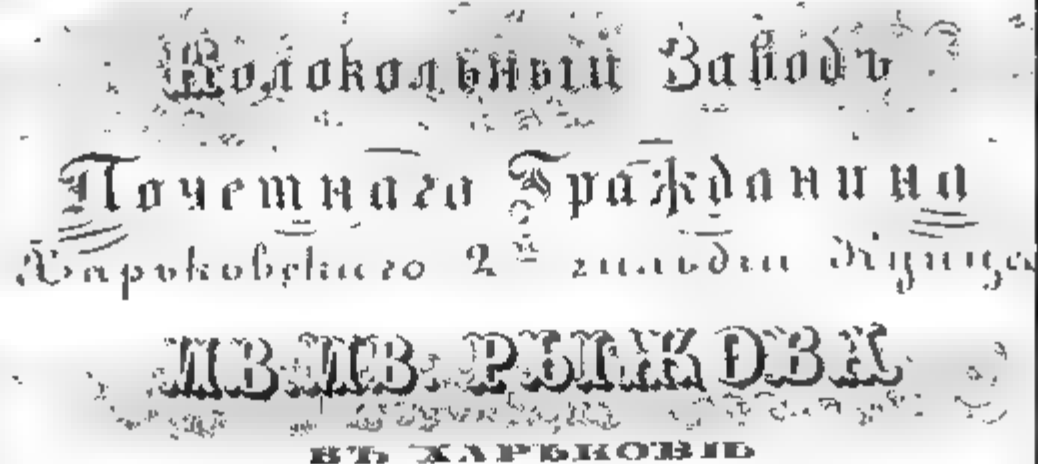 Колокольный Заводъ
Почетнаго Гражданина
Харьковскаго 2й гильдіи Купца
ИВ. ИВ. РЫЖОВА
ВЪ ХАРЬКОВѢ